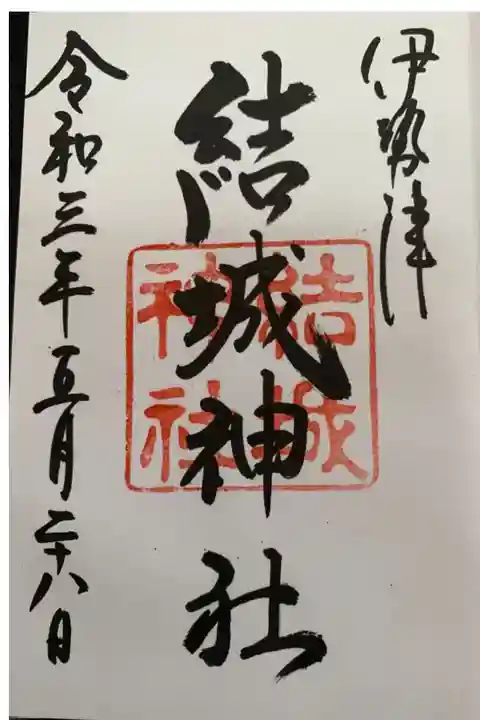 伊勢津
結城神社
結城
神社
令和三年五月二十八日